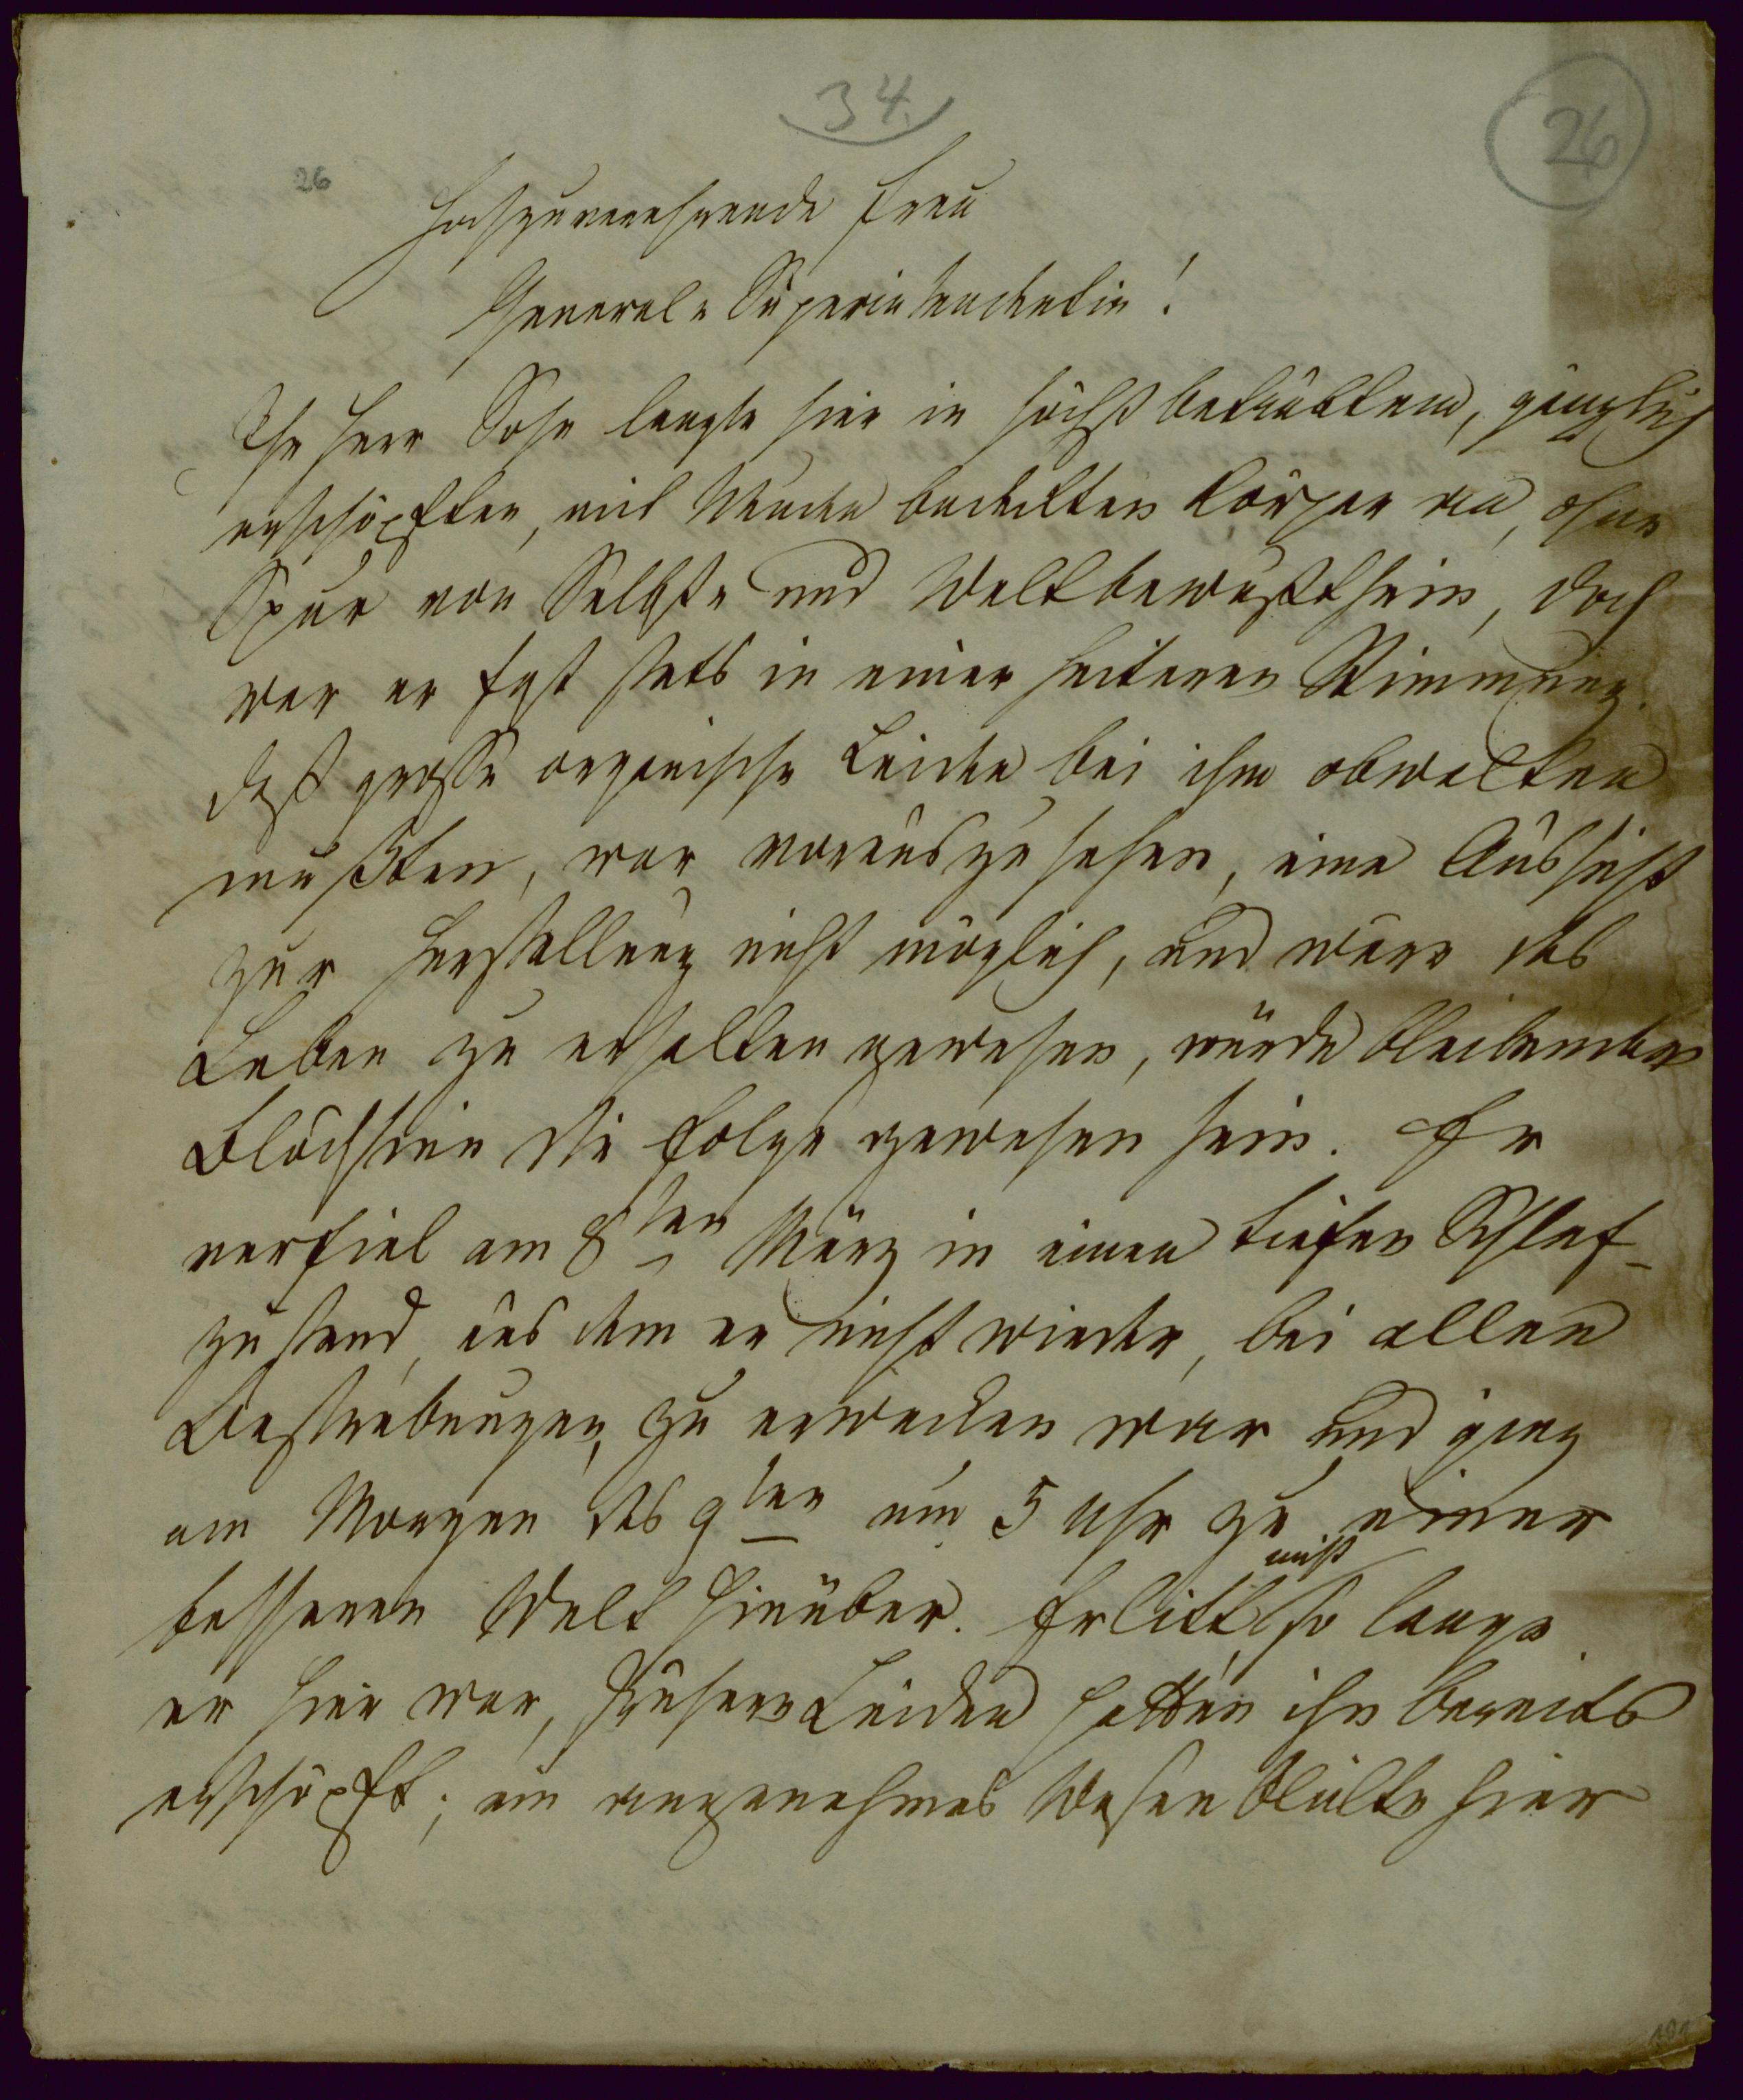 34.
26
26
Hochzuverehrende Frau
General-Superintendentin!
Ihr Herr Sohn langte hier in höchst betrübtem, gänzlich
erschöpften, mit Wunden bedeckten Körper an, ohne
Spur von Selbst- und Weltbewußtsein, doch
war er fast stets in einer heiteren Stimmung.
daß große organische Leiden bei ihm obwalten
mußten, war vorauszusehen, eine Aussicht
zur Herstellung nicht möglich, und wäre das
Leben zu erhalten gewesen, würde bleibender
Blödsinn die Folge gewesen sein. Er
verfiel am 8ten März in einen tiefen Schlaf-
zustand, aus dem er nicht wieder, bei allen
Bestrebungen, zu erwecken war und ging
am Morgen des 9ten um 5 Uhr zu einer
besseren Welt hinüber. Er litt nicht so lange
er hier war, frühere Leiden hatten ihn bereits
erschöpft; ein angenehmes Wesen blickte hier